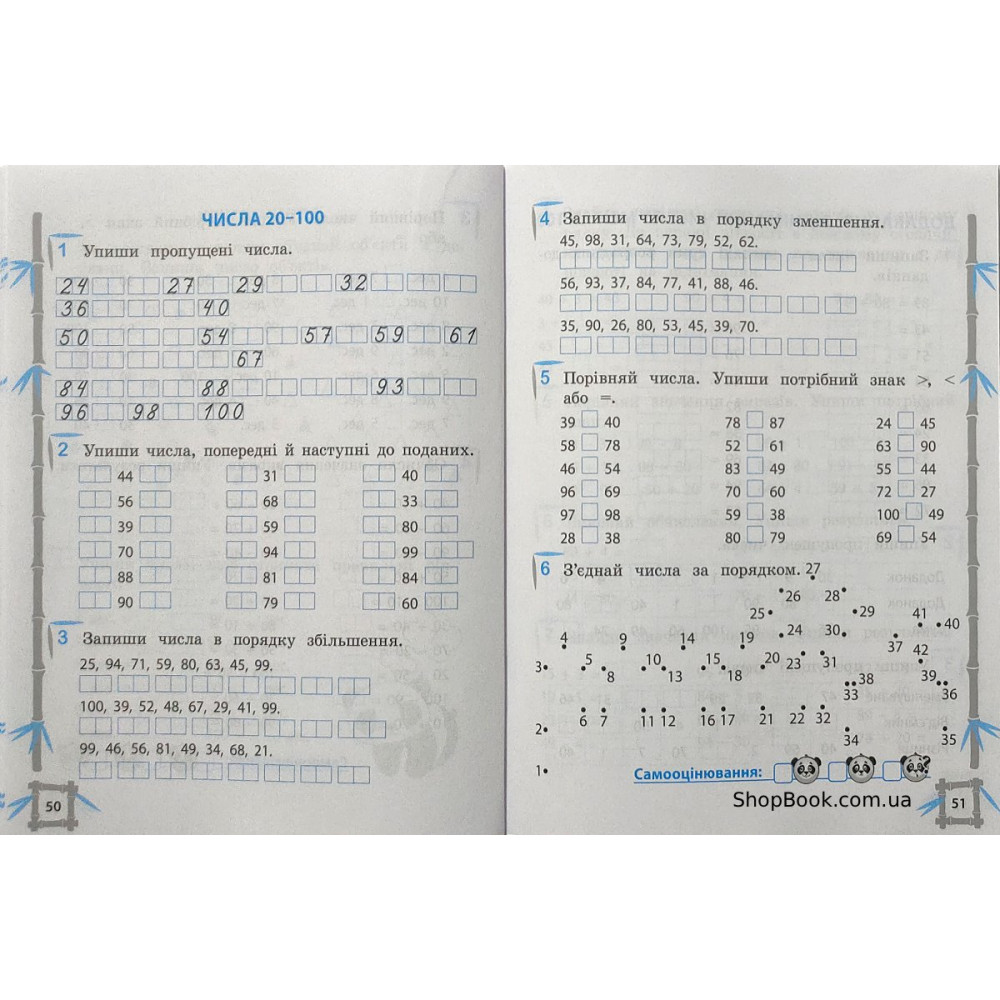 ЧИСЛА 20–100
1 Упиши пропущені числа.
24 27 29 32
36 40
50 54 57 59 61
67
84 88 93
96 98 100
2 Упиши числа, попередні й наступні до поданих.
44 31 40
56 68 33
39 59 80
70 94 99
88 81 84
90 79 60
3 Запиши числа в порядку збільшення.
25, 94, 71, 59, 80, 63, 45, 99.
100, 39, 52, 48, 67, 29, 41, 99.
99, 46, 56, 81, 49, 34, 68, 21.
50
4 Запиши числа в порядку зменшення.
45, 98, 31, 64, 73, 79, 52, 62.
56, 93, 37, 84, 77, 41, 88, 46.
35, 90, 26, 80, 53, 45, 39, 70.
5 Порівняй числа. Упиши потрібний знак >, <
або =.
39 40 78 87 24 45
58 78 52 61 63 90
46 54 83 49 55 44
96 69 70 60 72 27
97 98 59 38 100 49
28 38 80 79 69 54
6 З’єднай числа за порядком. 27
26 28
25 29 41
4 9 14 19 24 30 40
37 42
3 5 10 15 20 23 31
8 13 18 38 39
33 36
2 6 7 11 12 16 17 21 22 32
34 35
1
Самооцінювання:
ShopBook.com.ua
51